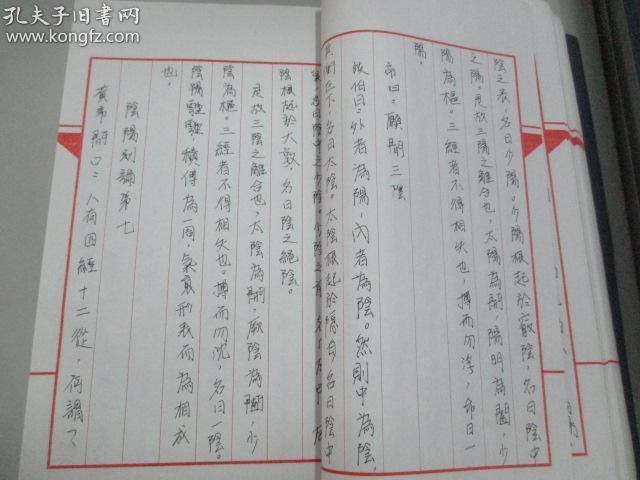 孔夫子旧书网
www.kongfz.com
陰之表，名曰少陽。少陽根起於竅陰，名曰陰中
之少陽。是故三陽之離合也，太陽為開，陽明為闔，少
陽為樞。三經者不得相失也，搏而勿浮，命曰一
陽。
帝曰：願聞三陰
岐伯曰：外者為陽，內者為陰。然則中為陰，
其衝在下，名曰太陰。太陰根起於隱白，名曰陰中
陰根起於大敦，名曰陰之絕陰。
是故三陰之離合也，太陰為開，厥陰為闔，少
陰為樞。三經者不得相失也。搏而勿沉，名曰一陰。
陰陽𩧢𩧢，積傳為一周，氣裏形表而為相成
也。
陰陽別論第七
黃帝問曰：人有四經十二從，何謂？